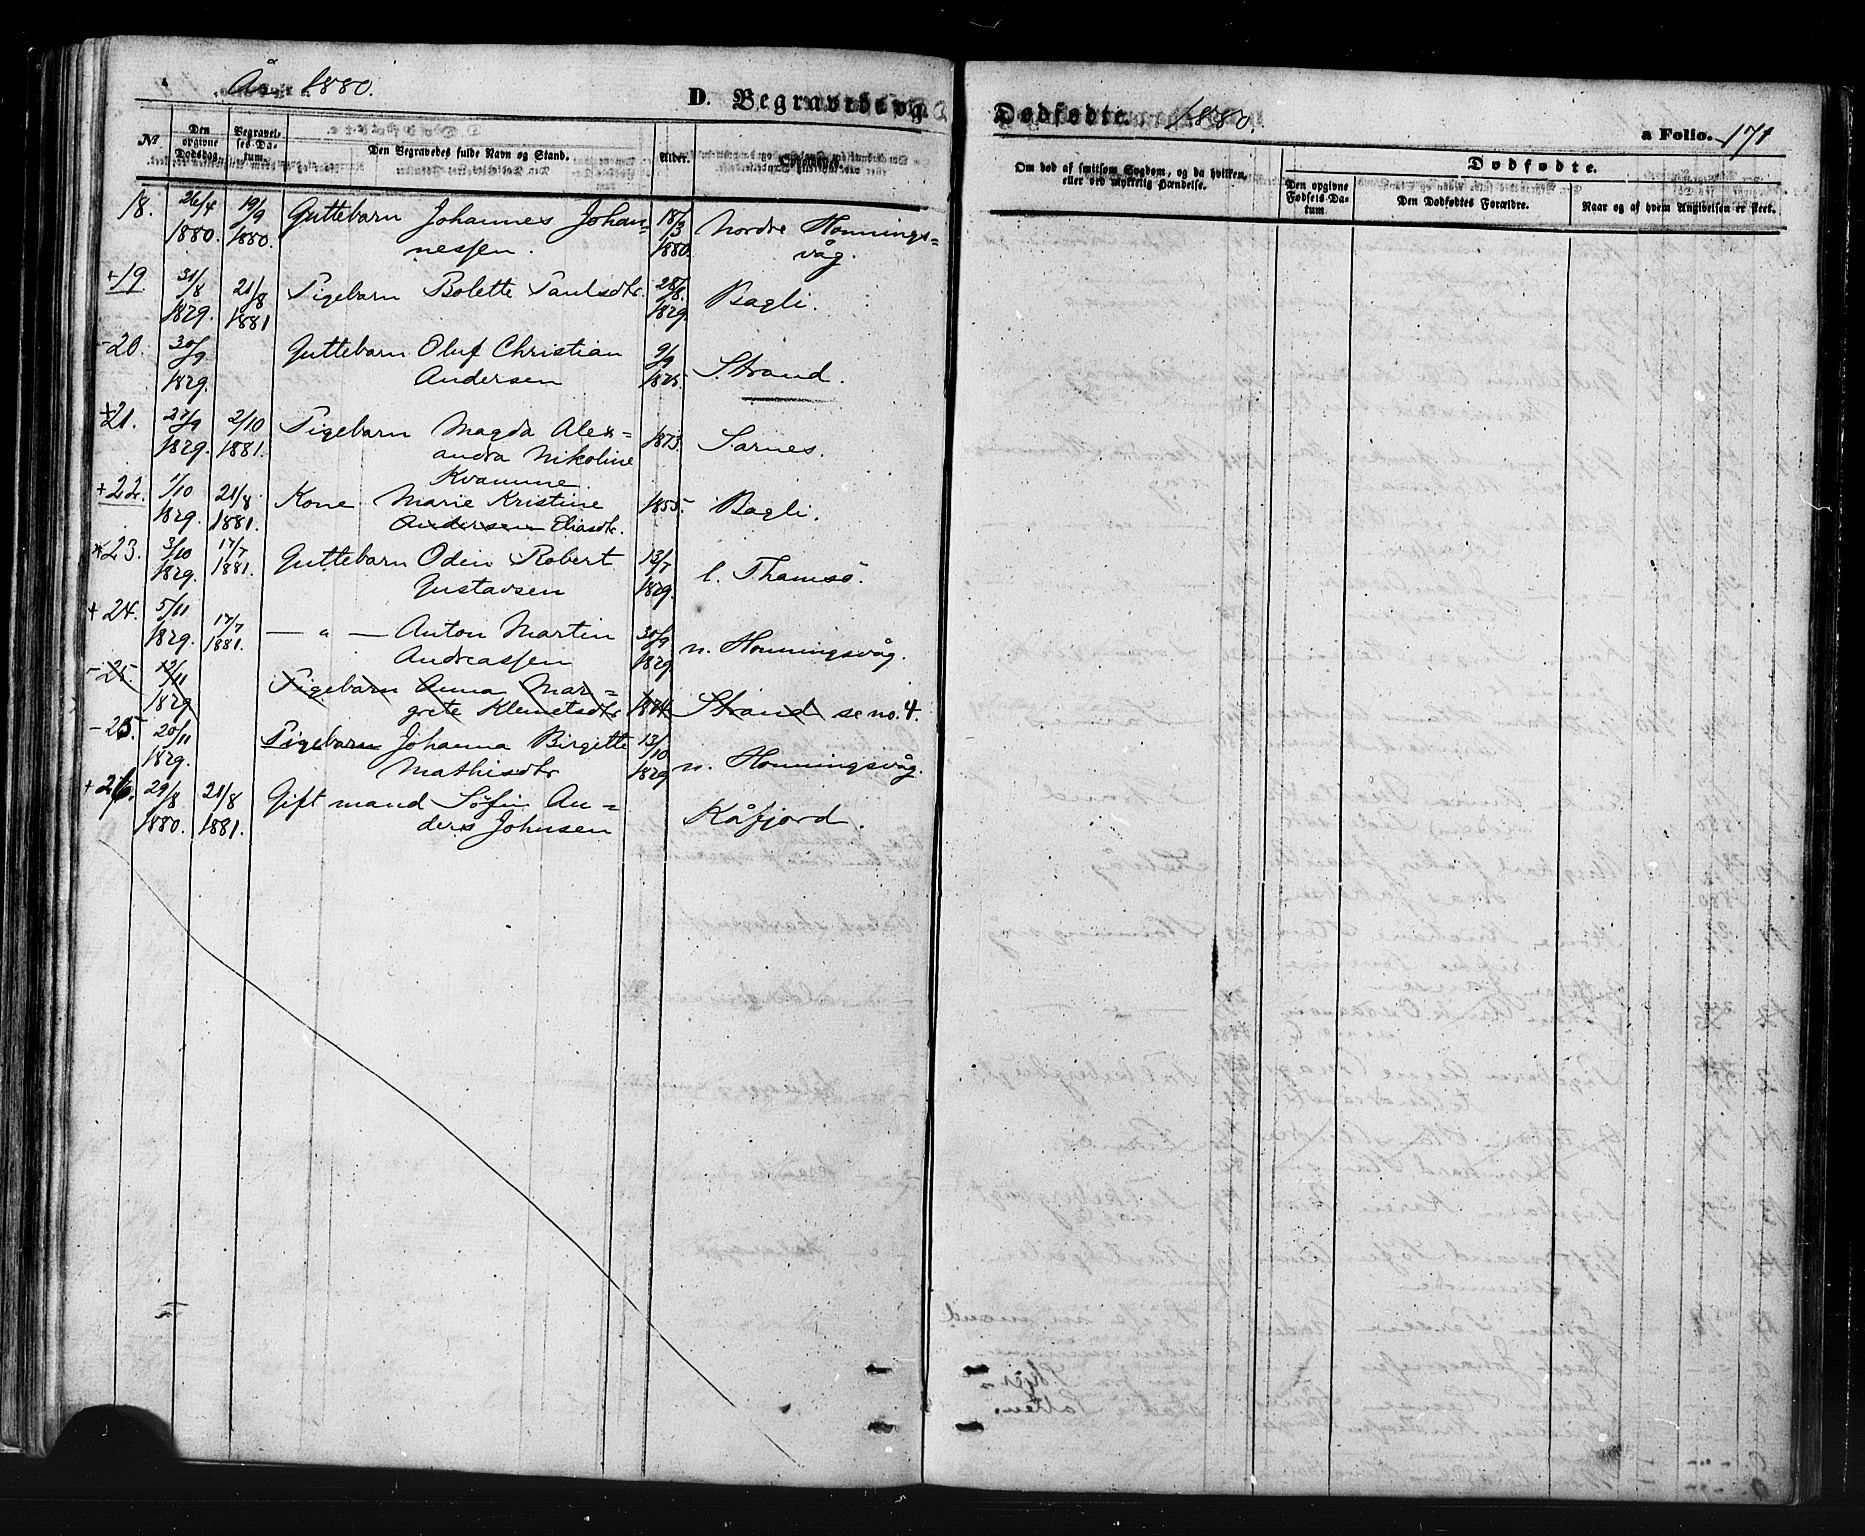 År 1880.
D. Begravede og
Dødfødte. 1880.
a Folio. 171
№
Den opgivne Dødsdag.
Begravelses-Datum.
Den Begravedes fulde Navn og Stand.
Alder.
Om død af smitsom Sygdom, og da hvilken, eller ved mykkelig Hændelse.
Dødfødte.
Den opgivne Fødsels-Datum
Den Dødfødtes Forældre.
Naar og af hvem Angivelsen er skeet.
18. 26/4 1880. 19/9 1880. Guttebarn Johannes Johan-
nessen. 18/3 1880. Nordre Honnings-
våg.
+19. 31/8 1879. 21/8 1881 Pigebarn Bolette Paulsdtr. 28/8. 1879 Bagli.
-20. 30/9 1879. Guttebarn Oluf Christian
Andersen 9/9 1875. Strand.
+21. 27/9 1879. 2/10 1881. Pigebarn Magda Alex-
andra Nikoline
Kvamme 1873. Sarnes.
+22. 1/10 1879. 21/8 1881. Kone Marie Kristine
Andersen Eliasdtr. 1855. Bagli.
+23. 3/10 1879. 17/7 1881. Guttebarn Odin Robert
Gustavsen 13/7 1879. l. Thamsø.
+24. 5/11 1879. 17/7 1881. — " — Anton Martin
Andreassen 30/9 1879 n. Honningsvåg.
-25. 12/11 1879 Pigebarn Anna Mar-
grete Klemetsdtr 1874 Strand se no. 4.
-25. 20/11 1879. Pigebarn Johanna Birgitte
Mathisdtr 13/10 1879 n. Honningsvåg.
+26. 29/8 1880. 21/8 1881. Gift mand Søfin An-
ders Johnsen Kåfjord.